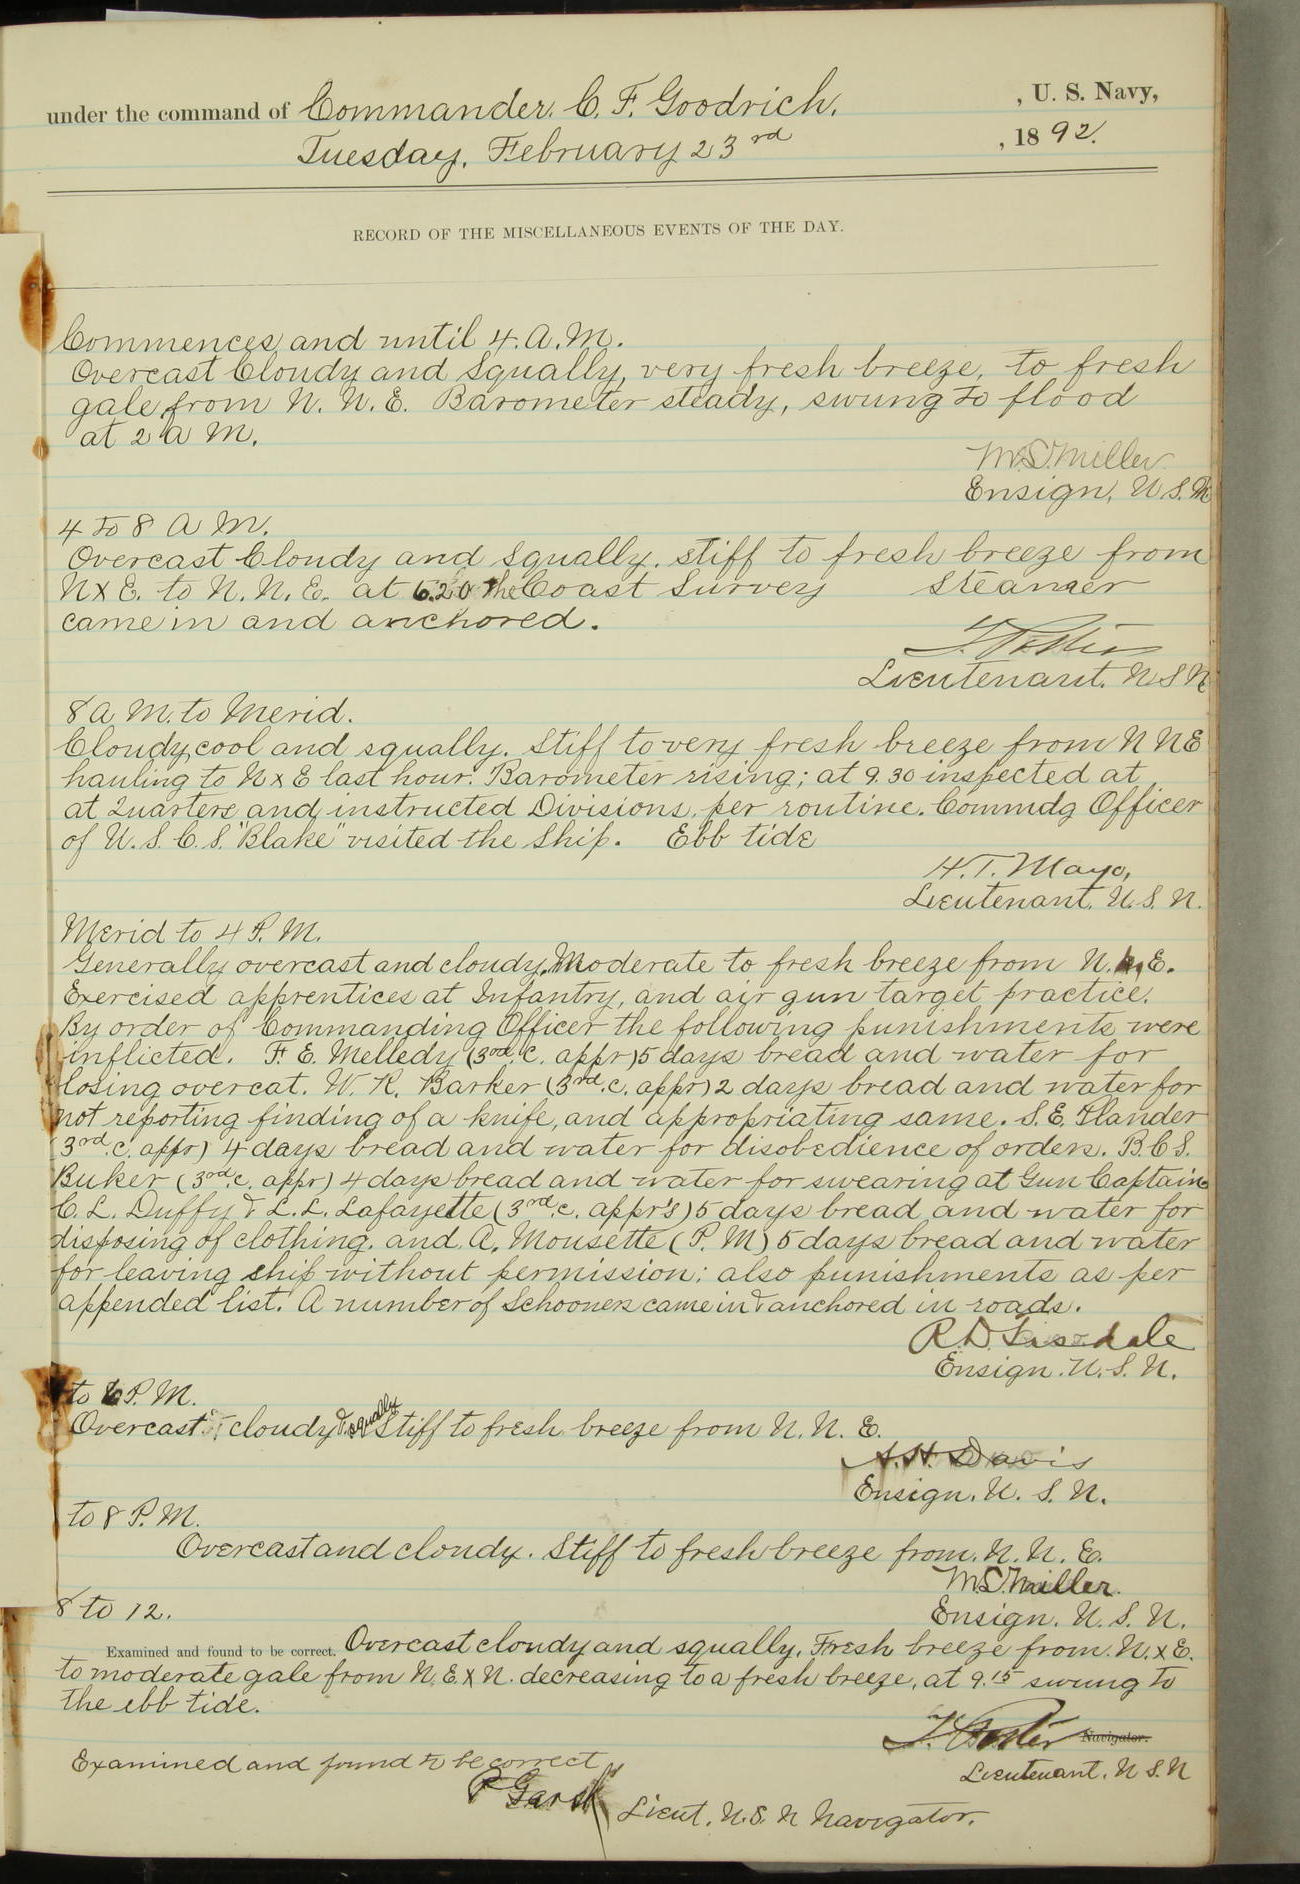 under the command of Commander. C. F. Goodrich. , U. S. Navy,
Tuesday, February 23rd , 1892.
RECORD OF THE MISCELLANEOUS EVENTS OF THE DAY.
Commences and until 4. A. M.
Overcast Cloudy and Squally, very fresh breeze, to fresh
gale, from N. N. E. Barometer steady, swung to flood
at 2 A M.
M.S. Miller
Ensign, U. S. N
4 to 8 A M.
Overcast Cloudy and Squally. stiff to fresh breeze from
N x E. to N. N. E. at 6.20 the Coast Survey Steamer
came in and anchored.
Lieutenant. U S N
8 A M. to Merid.
Cloudy, cool and squally. Stiff to very fresh breeze from N N E
hauling to N x E last hour. Barometer rising; at 9.30 inspected at
at Quarters and instructed Divisions, per routine. Commdg Officer
of U. S. C. S. "Blake" visited the Ship. Ebb tide
H. T. Mayo,
Lieutenant. U. S. N.
Merid to 4 P. M.
Generally overcast and cloudy. Moderate to fresh breeze from N. N. E.
Exercised apprentices at Infantry, and air gun target practice.
By order of Commanding Officer the following punishments were
inflicted. F. E. Melledy (3rd. c. appr) 5 days bread and water for
losing overcat. W. R. Barker (3rd. c. appr) 2 days bread and water for
not reporting finding of a knife, and appropriating same. S. E. Flander
(3rd. c. appr) 4 days bread and water for disobedience of orders. B. C. S.
Buker (3rd. c. appr) 4 days bread and water for swearing at Gun Captain
C. L. Duffy & L. L. Lafayette (3rd. c. appr's) 5 days bread and water for
disposing of clothing. and A. Mousette (P. M) 5 days bread and water
for leaving ship without permission; also punishments as per
appended list. A number of Schooners came in & anchored in roads.
R. D. Tisdale
Ensign. U. S. N.
to 6 P. M.
Overcast cloudy & squally Stiff to fresh breeze from N. N. E.
A. H. Davis
Ensign. U. S. N.
to 8 P. M.
Overcast and cloudy. Stiff to fresh breeze from. N. N. E.
M. S. Miller.
8 to 12. Ensign. U. S. N.
Examined and found to be correct. Overcast cloudy and squally. Fresh breeze from. N. x E.
to moderate gale from N. E. x N. decreasing to a fresh breeze, at 9.15 swung to
the ebb tide.
Navigator.
Examined and found to be correct Lieutenant. U S. N
Lieut. U. S. N Navigator.